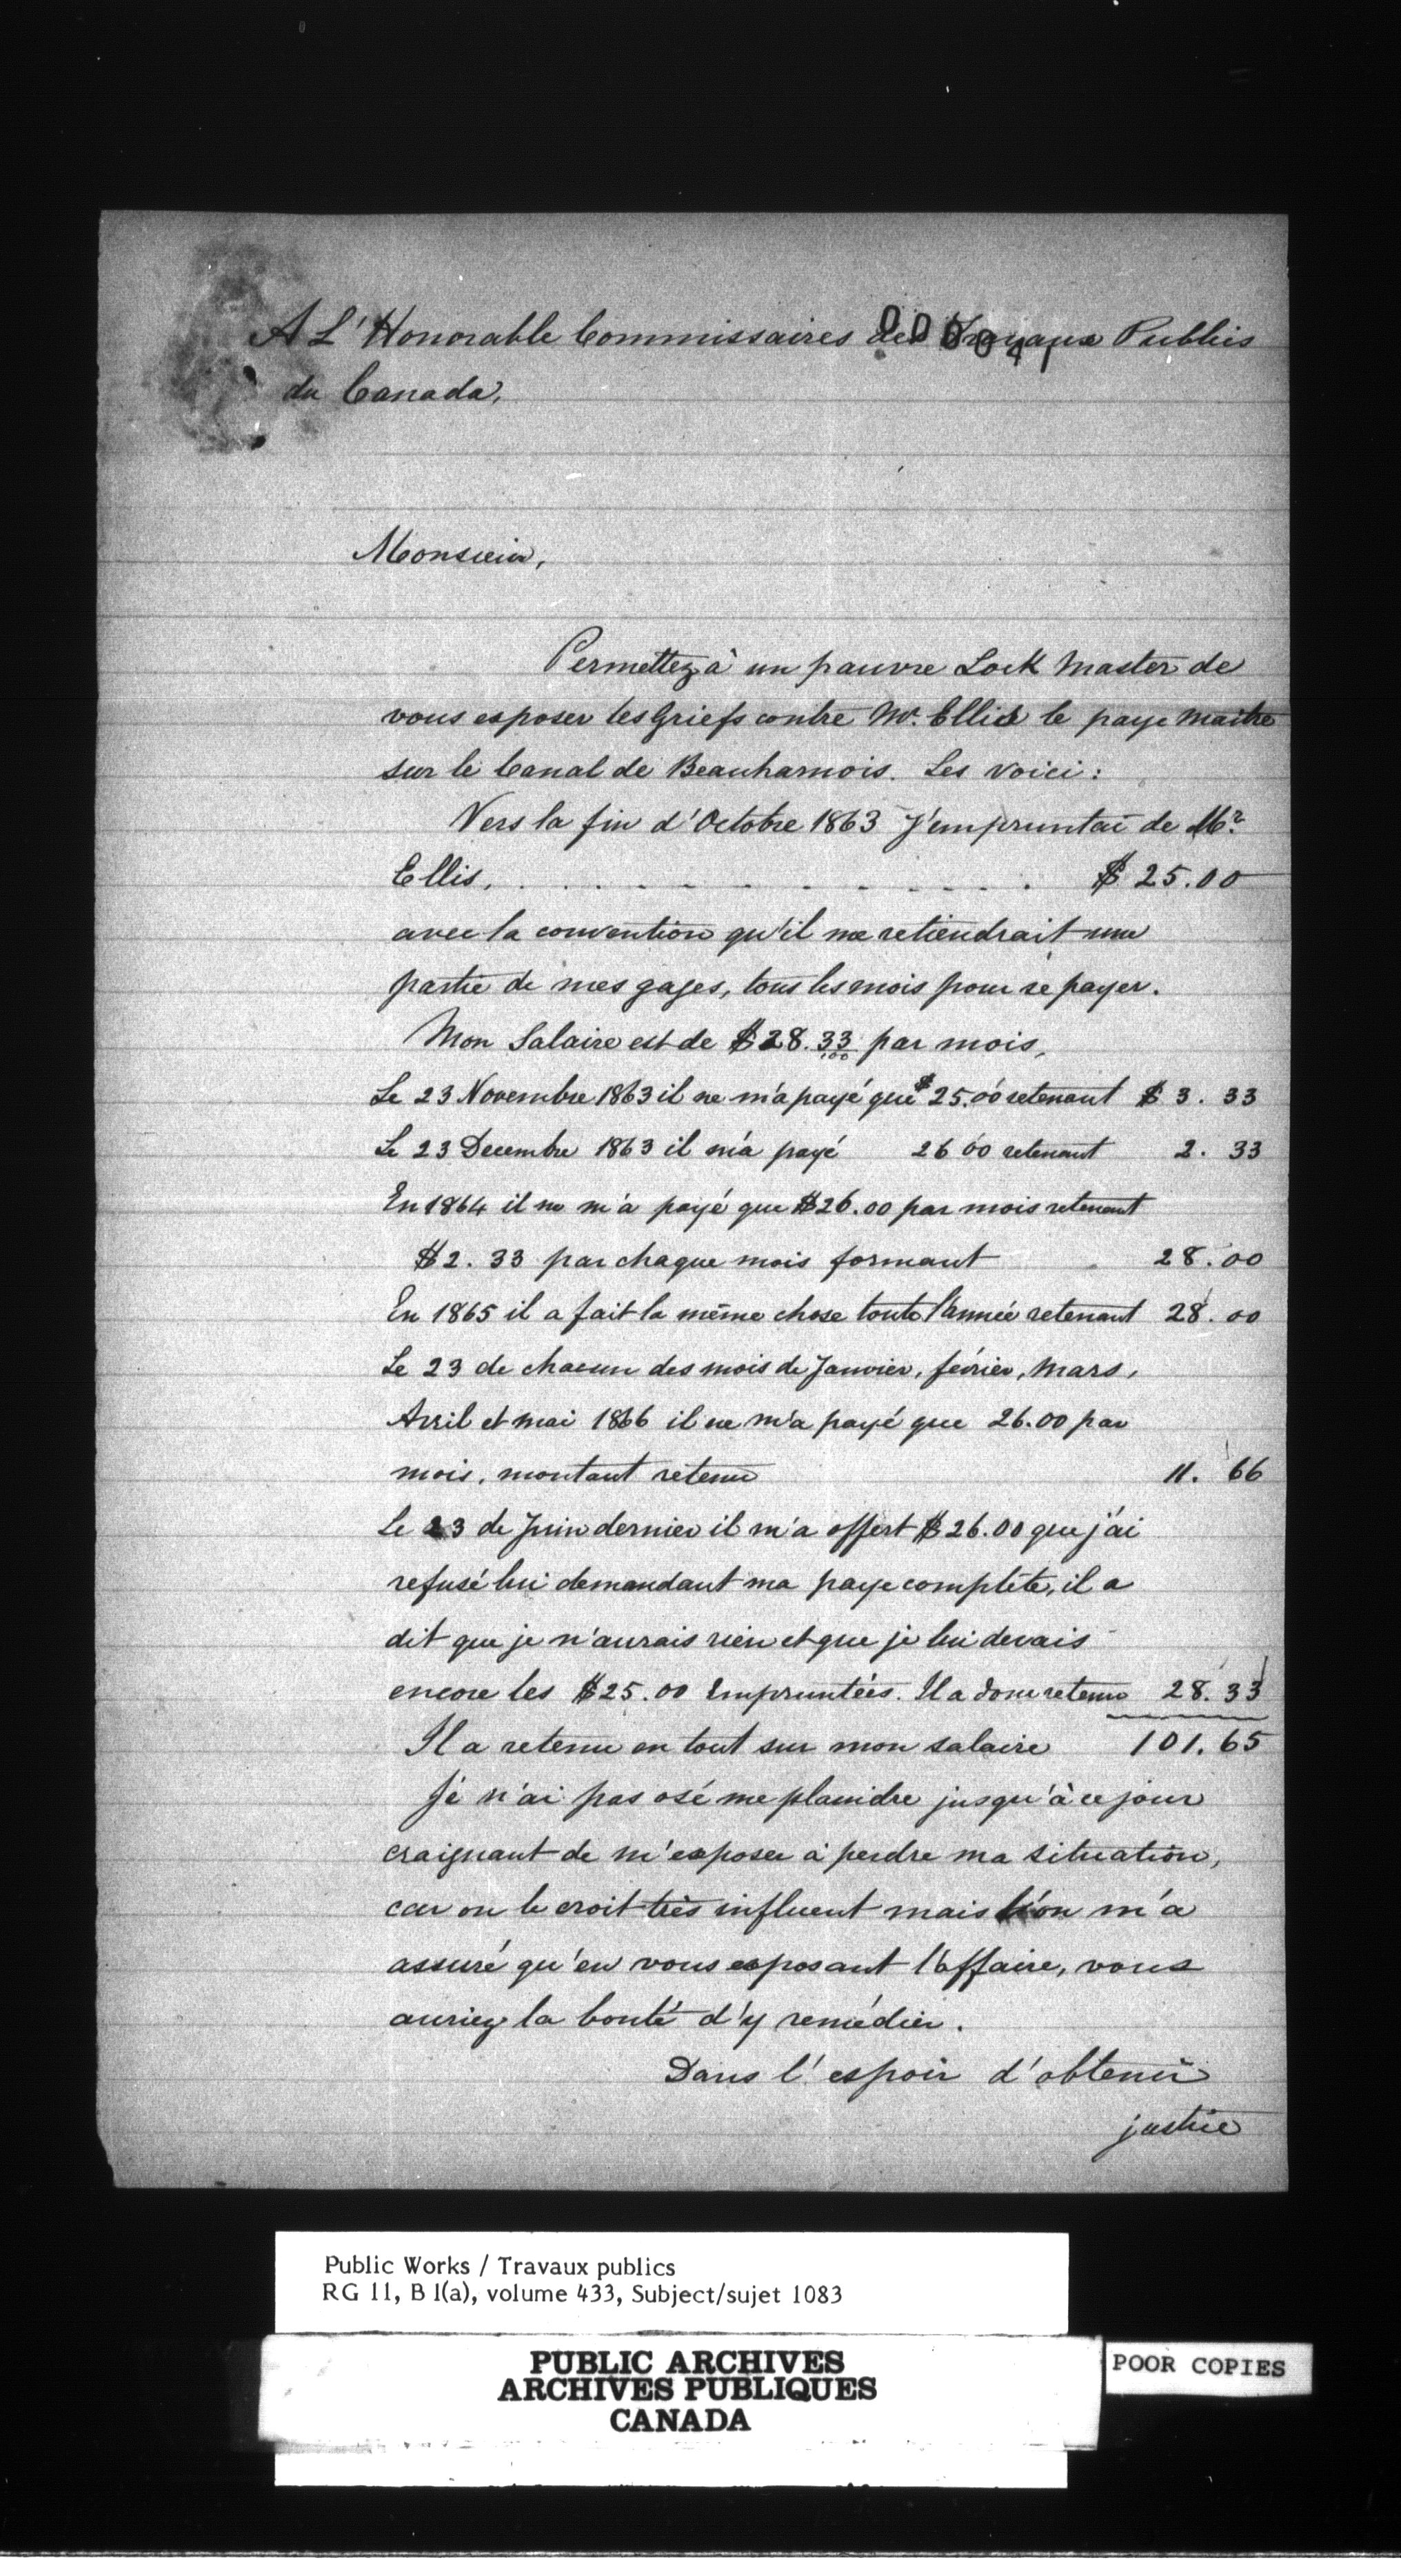 A L'Honorable Commissaires des Travaux Publics
000041
du Canada,
Monsieur,
Permettez à un pauvre Lock Master de
vous exposer les Griefs contre Mr. Ellis le paye Maitre
sur le Canal de Beauharnois. Les voici :
Vers la fin d'Octobre 1863 J'empruntai de Mr.
Ellis. . . . . . . . . . . . $ 25.00
avec la convention qu'il me retiendrait une
partie de mes gages, tous les mois pour se payer.
Mon Salaire est de $28.33/100 par mois,
Le 23 Novembre 1863 il ne m'a payé que $25.00 retenant $ 3. 33
Le 23 Decembre 1863 il m'a payé 26 00 retenant 2. 33
En 1864 il ne m'a payé que $26.00 par mois retenant
$2. 33 par chaque mois formant 28.00
En 1865 il a fait la même chose toute l'année retenant 28.00
Le 23 de chacun des mois de Janvier, février, Mars,
Avril et mai 1866 il ne m'a payé que 26.00 par
mois, montant retenu 11. 66
Le 23 de Juin dernier il m'a offert $26.00 que j'ai
refusé lui demandant ma paye complète, il a
dit que je n'aurais rien et que je lui devais
encore les $25.00 Empruntées. Il a donc retenu 28. 33
Il a retenu en tout sur mon salaire 101.65
Je n'ai pas osé me plaindre jusqu'à ce jour
craignant de m'exposer à perdre ma situation,
car on le croit très influent mais l'on m'a
assuré qu'en vous exposant l'affaire, vous
auriez la bonté d'y remédier.
Dans l'espoir d'obtenir
justice
Public Works / Travaux publics
RG 11, B 1(a), volume 433, Subject/sujet 1083
PUBLIC ARCHIVES
ARCHIVES PUBLIQUES
CANADA
POOR COPIES